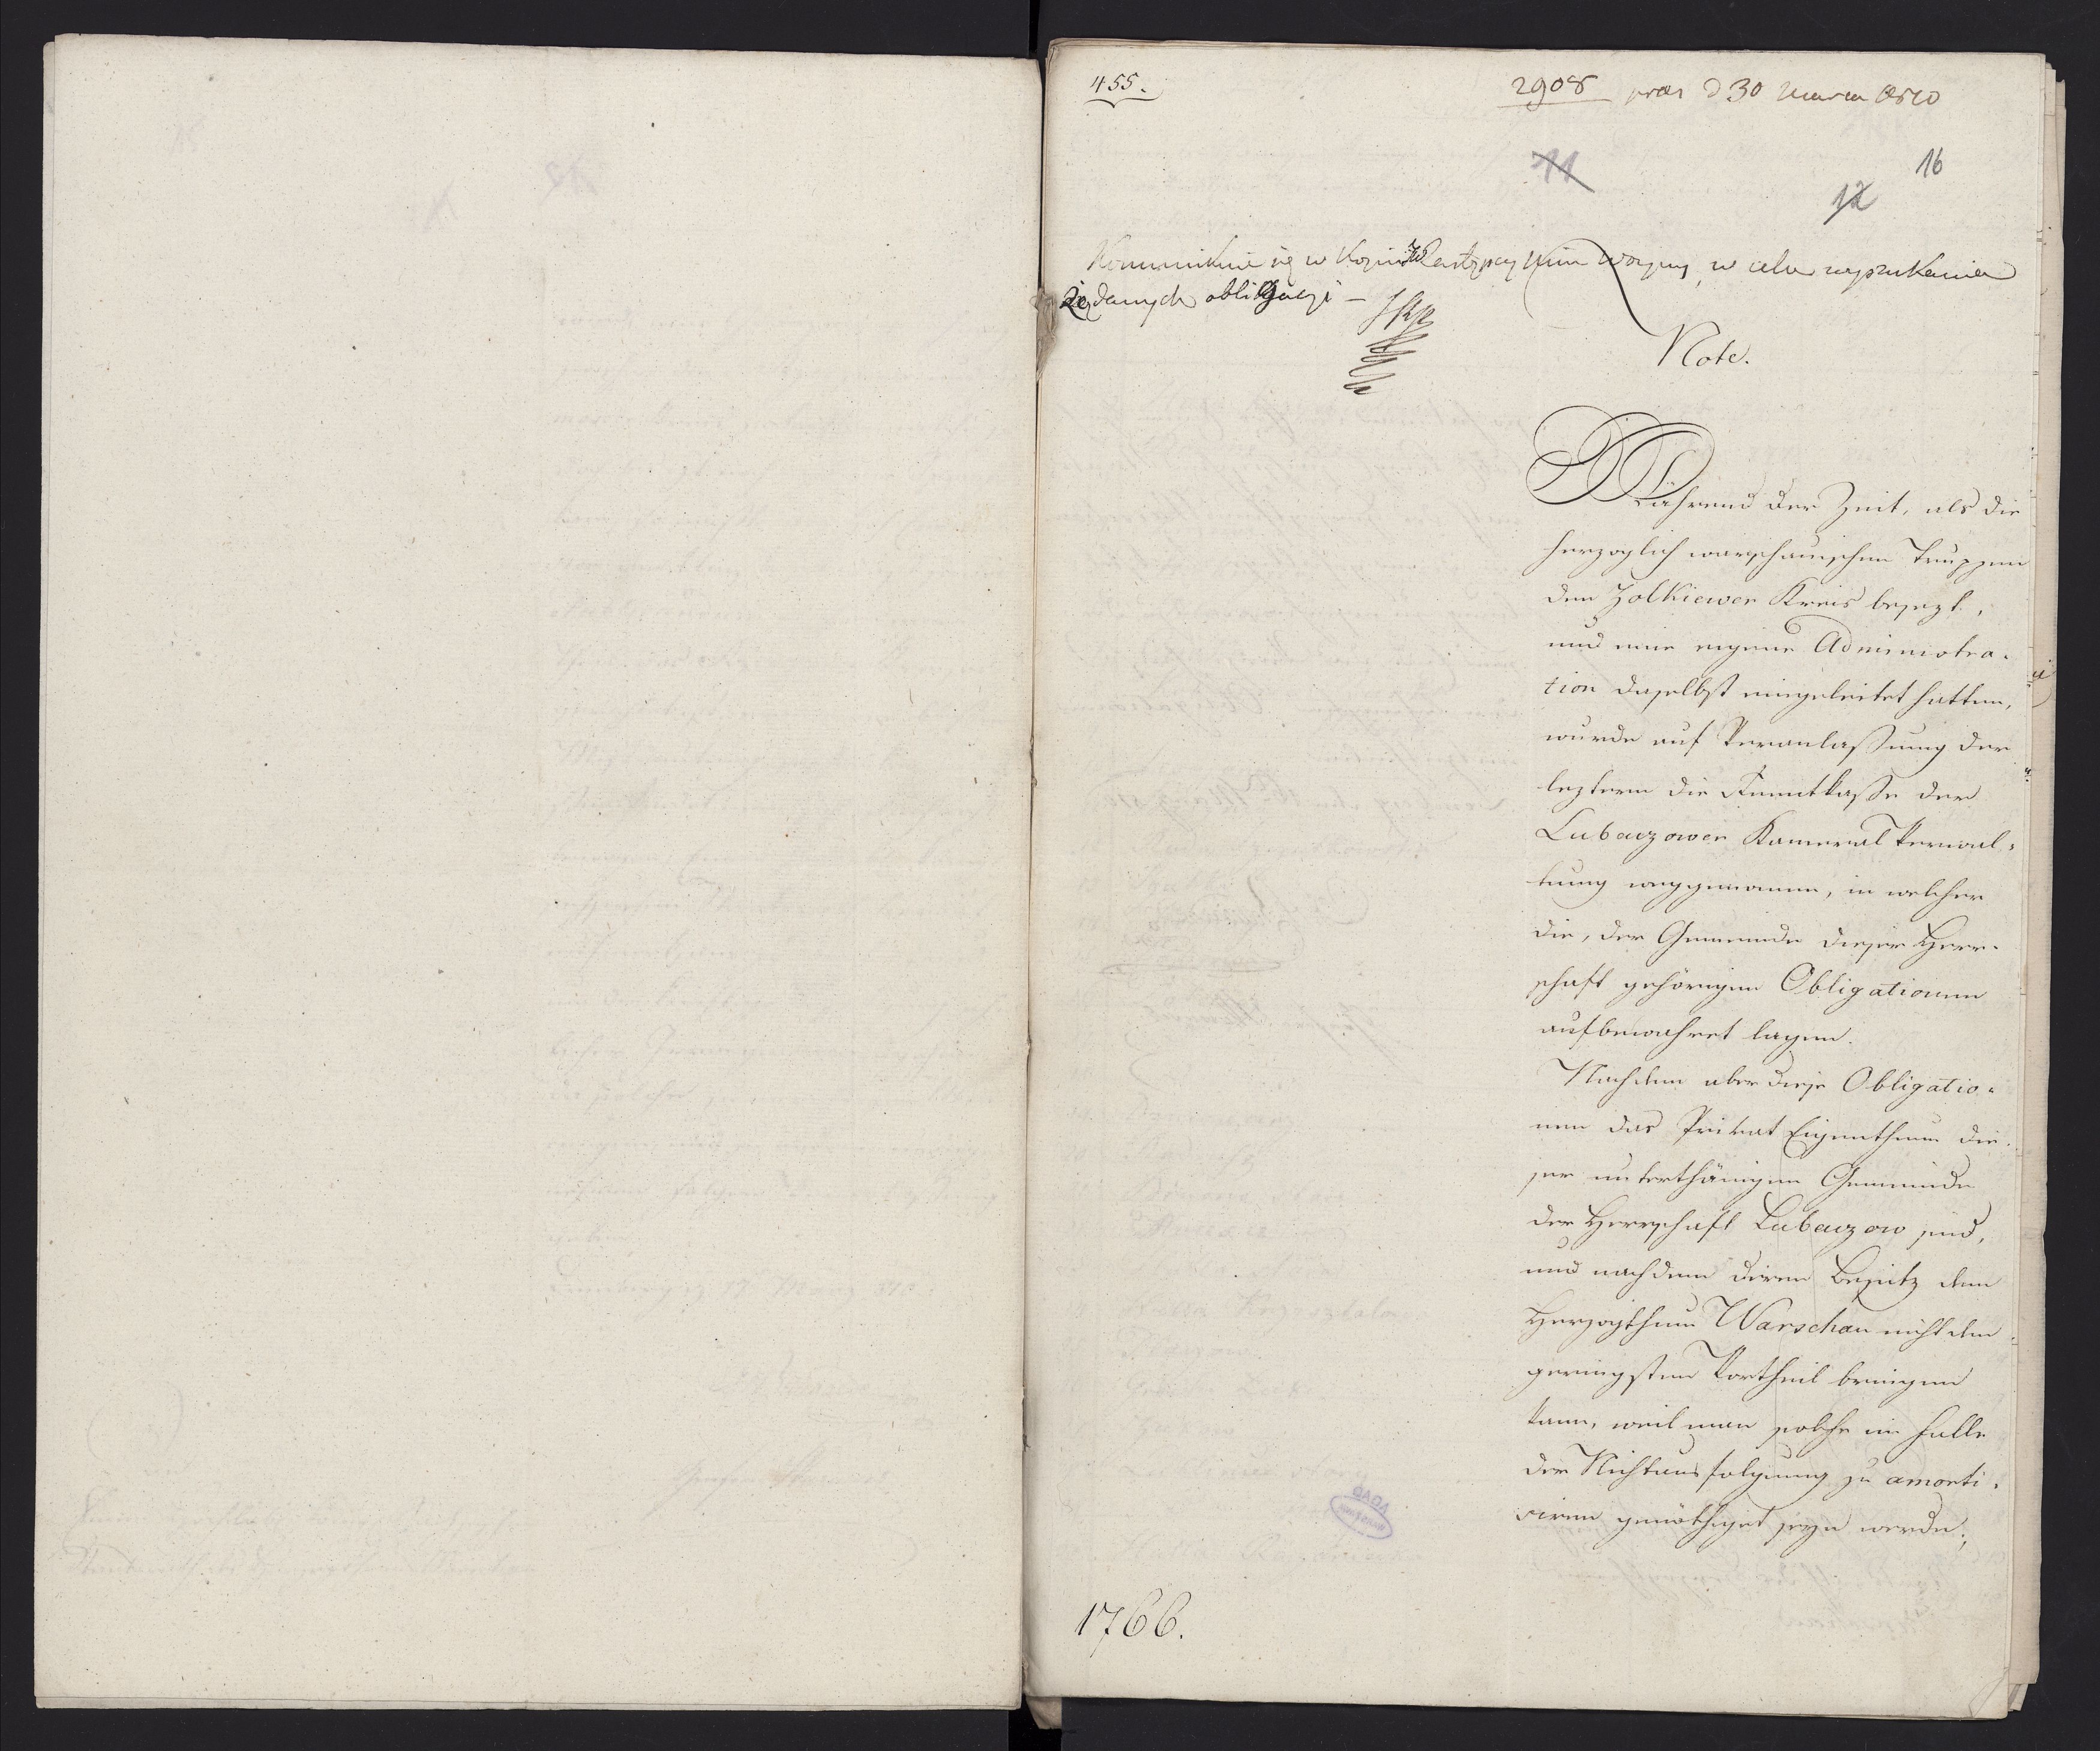 455.
2908 praes d 30 Marca 1810
11
16
12
Kommunikuie się w Kopii Zastępcy Min Woyny, w celu wyszukania
żądanych obligacyi —
Note.
Während der Zeit, als die
herzoglich warschauischen Truppen
den Zolkiewer Kreis besezt,
und eine eigene Administra-
tion daselbst eingeleitet hatten,
wurde auf Veranlaßung der
leztern die Renntkaße der
Lubaczower Kameral Verwal-
tung weggenommen, in welcher
die, der Gemeinde dieser Herr-
schaft gehörigen Obligationen
aufbewahret lagen.
Nachdem aber diese Obligatio-
nen das Privat Eigenthum die-
ser unterthänigen Gemeinde
der Herrschaft Lubaczow sind,
und nachdem deren Besitz dem
Herzogthum Warschau nicht den
geringsten Vortheil bringen
kann, weil man solche im Falle
der Nichtausfolgung zu amorti-
siren genöthiget seyn werde;
ADAD
1766.